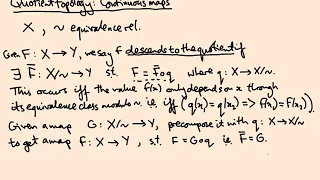 Quotient topology: Continuous maps
X, ~ equivalence rel.
Given F: X → Y, we say F descends to the quotient if
∃ F̄: X/~ → Y s.t. F = F̄∘q where q: X → X/~
This occurs iff the value F(x) only depends on x through
its equivalence class modulo ~ i.e. iff (q(x₁) = q(x₂) => F(x₁) = F(x₂)).
Given a map G: X/~ → Y, precompose it with q: X → X/~
to get a map F: X → Y, s.t. F = G∘q i.e. F̄ = G.